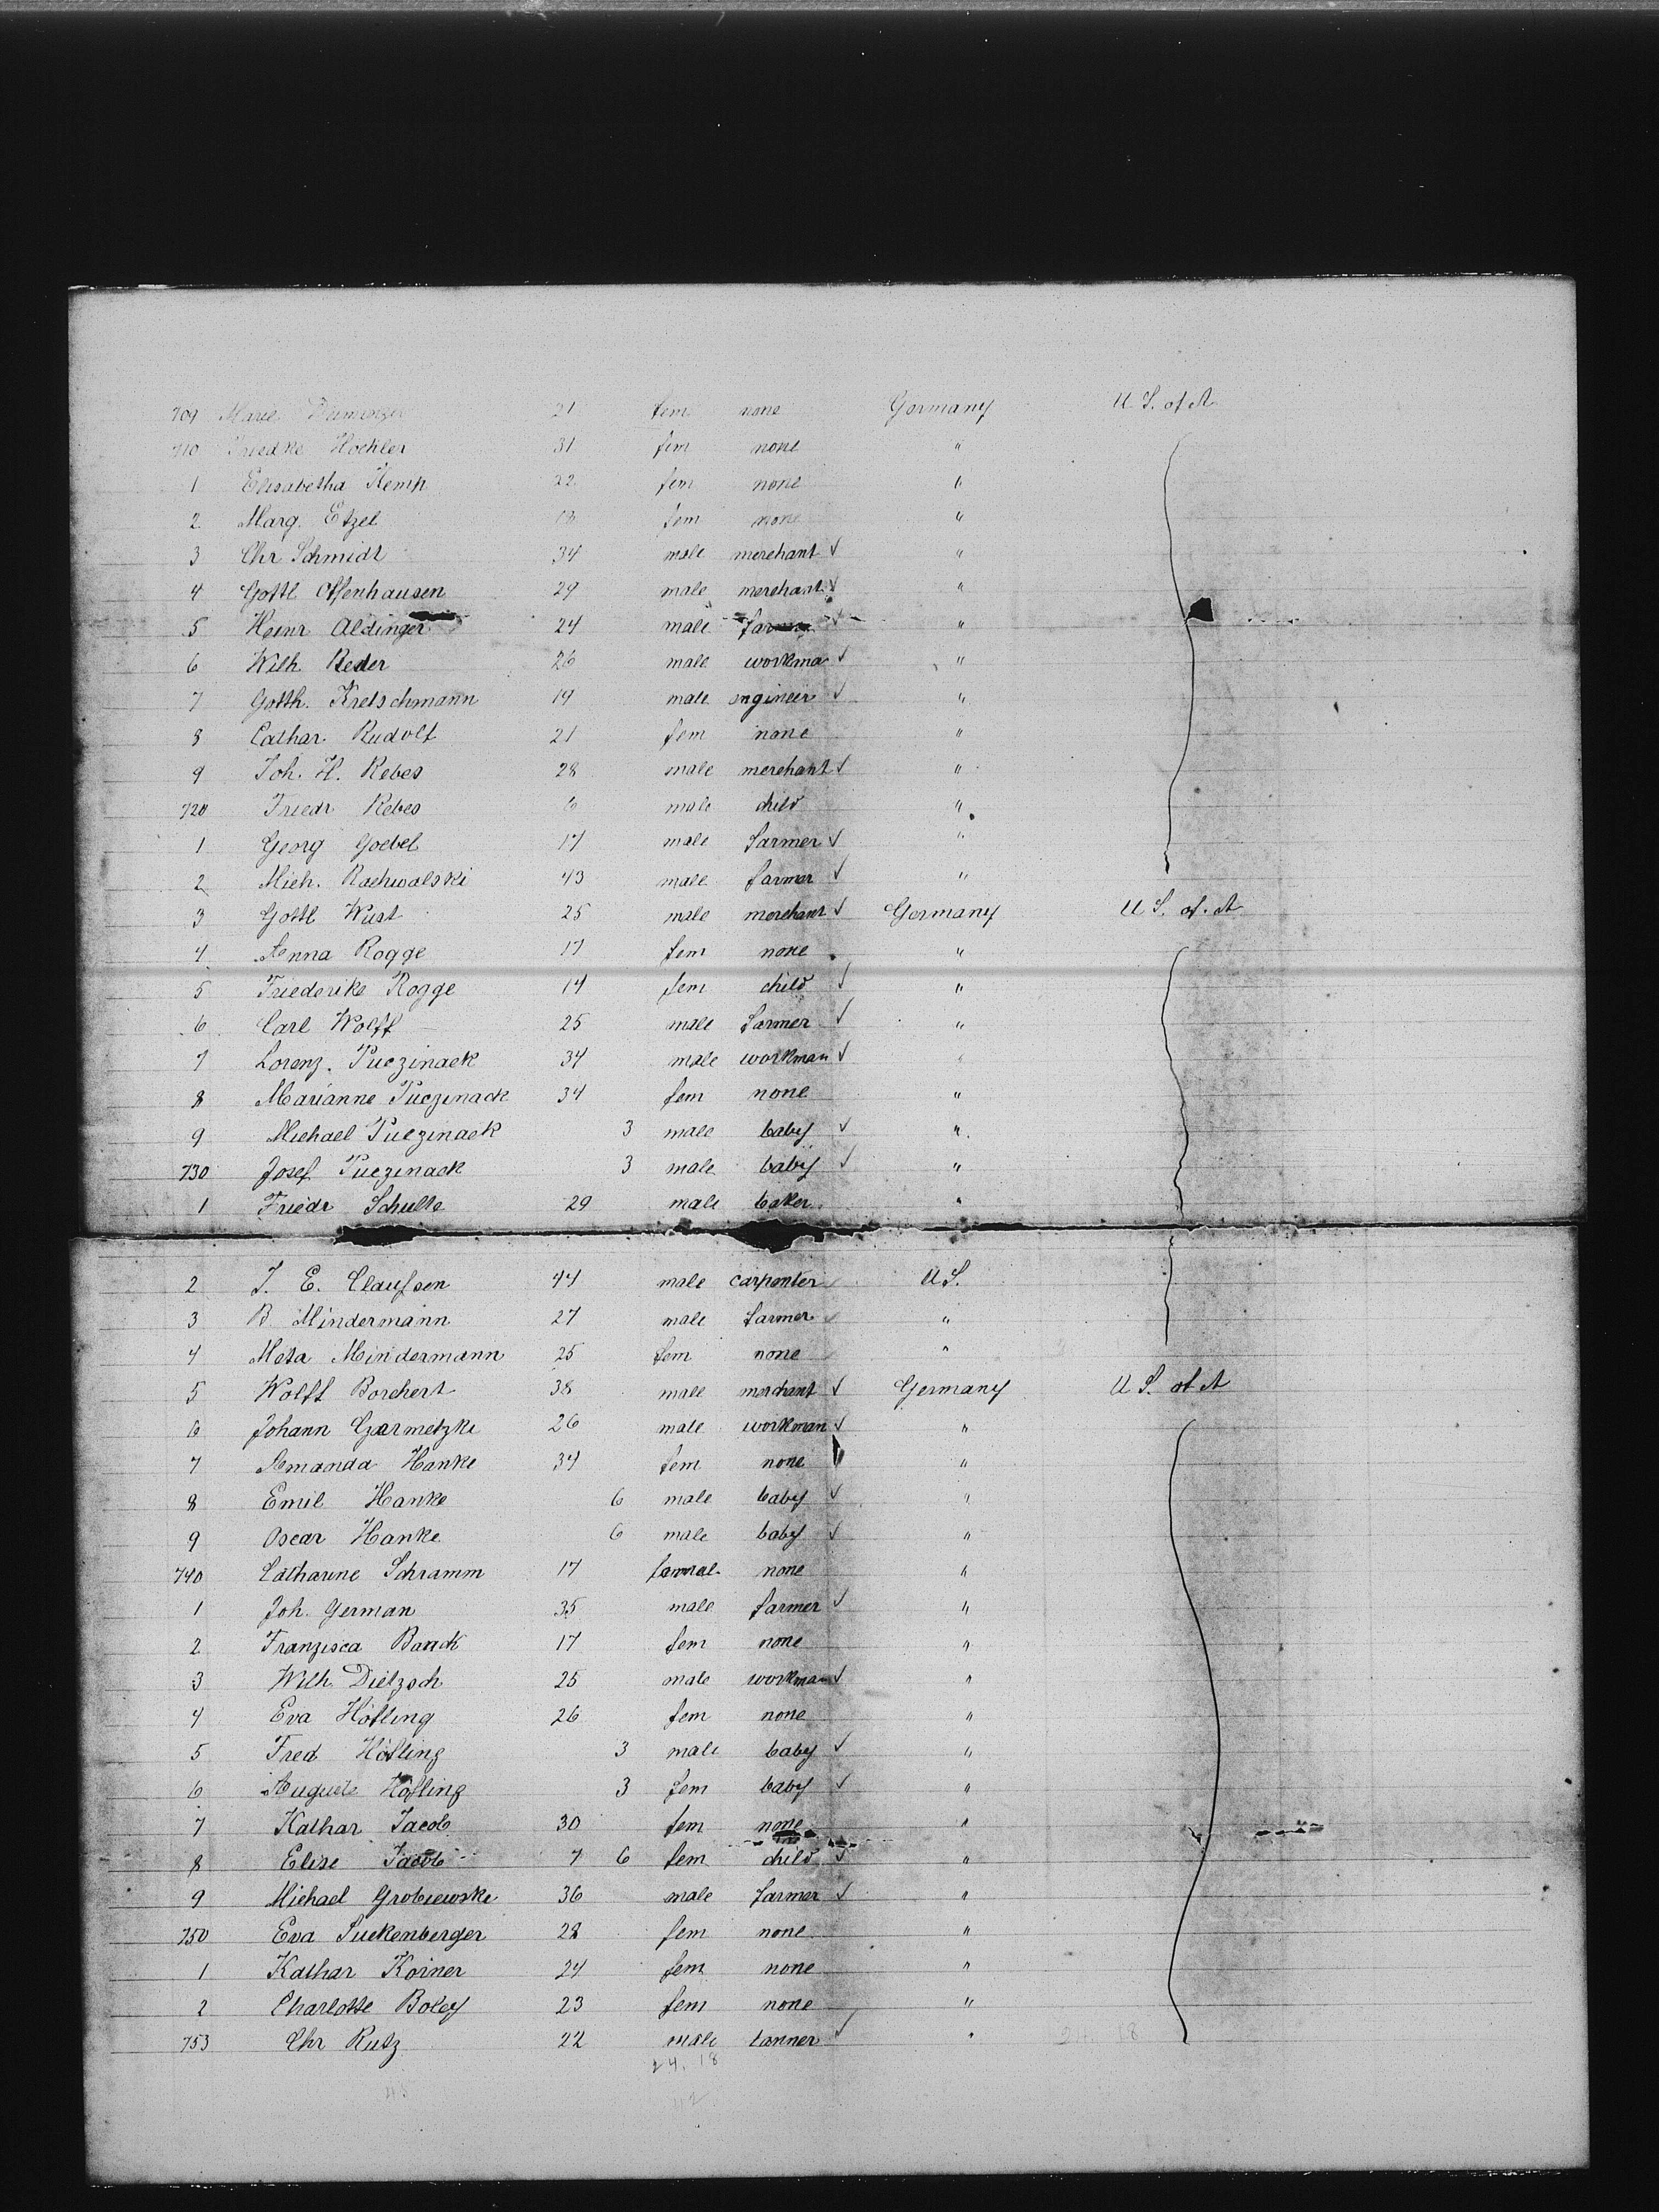 709 Marie 21 fem none Germany U S. of A
710 Friedke Hoehler 31 fem none "
1 Elisabetha Kemp 22 fem none "
2 Marg. Etzel 18 fem none "
3 Chr Schmidt 34 male merchant √ "
4 Gottl Offenhausen 29 male merchant √ "
5 Heinr Aldinger 24 male farmer √ "
6 Wilh Reder 26 male workma √ "
7 Gotth. Kretschmann 19 male engineer √ "
8 Cathar Rudolf 21 fem none "
9 Joh. H. Rebes 28 male merchant √ "
720 Friedr Rebes 6 male child "
1 Georg Goebel 17 male farmer √ "
2 Mich. Rachwalski 43 male farmer √ "
3 Gottl Wust 25 male merchant √ Germany U S. of. A
4 Anna Rogge 17 fem none "
5 Friederike Rogge 14 fem child √ "
6 Carl Wolff 25 male farmer √ "
7 Lorenz. Puczinack 34 male workman √ "
8 Marianne Puczinack 34 fem none "
9 Michael Puczinack 3 male baby √ "
730 Josef Puczinack 3 male baby √ "
1 Friedr Schulte 29 male baker "
2 J. E. Claussen 44 male carpenter U S.
3 B. Mindermann 27 male farmer "
4 Meta Mindermann 25 fem none "
5 Wolff Borchert 38 male merchant √ Germany U S. of A
6 Johann Czarmetzki 26 male workman √ "
7 Amanda Hanke 34 fem none "
8 Emil Hanke 6 male baby √ "
9 Oscar Hanke 6 male baby √ "
740 Catharine Schramm 17 none "
1 Joh. German 35 male farmer √ "
2 Franzisca Banck 17 fem none "
3 Wilh. Dietzsch 25 male workman √ "
4 Eva Höfling 26 fem none "
5 Fred Höfling 3 male baby √ "
6 Auguste Höfling 3 fem baby √ "
7 Kathar Jacob 30 fem none "
8 Elise Jacob 7 6 fem child √ "
9 Michael Grobiewske 36 male farmer √ "
750 Eva Suckenberger 28 fem none "
1 Kathar Körner 24 fem none "
2 Charlotte Boley 23 fem none "
753 Chr Rutz 22 male tanner √ " 24. 18
24. 18
45 42